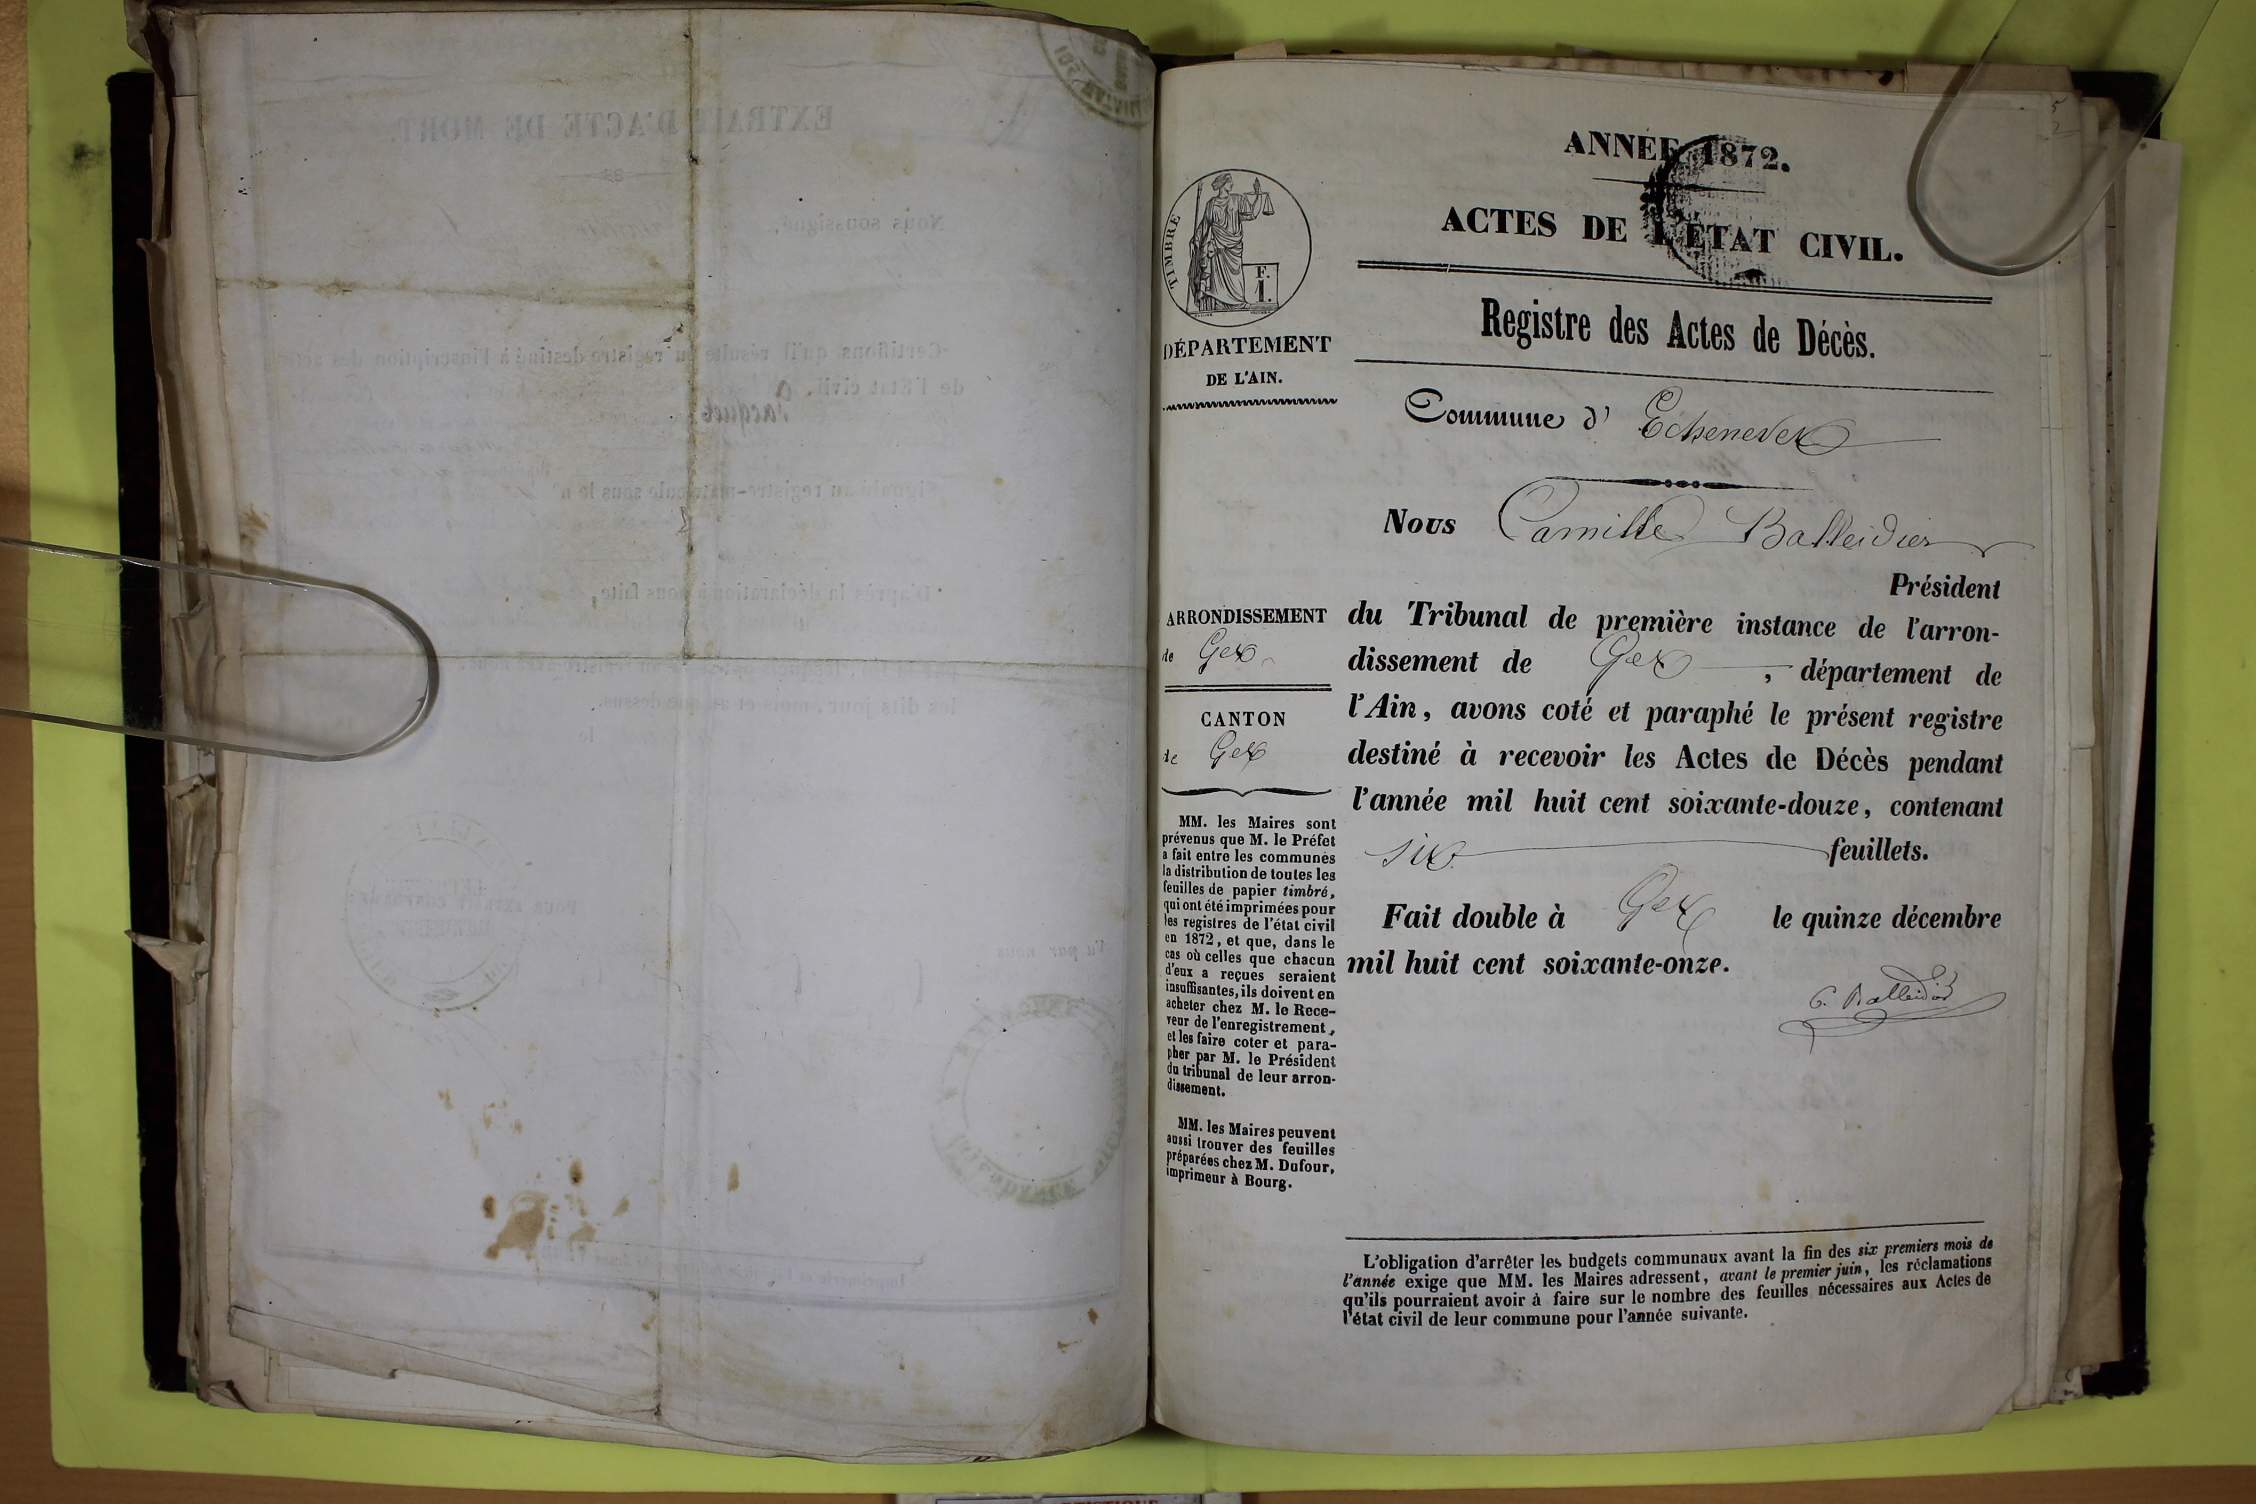 EXTRAIT D'ACTE DE MORT.
Nous soussigné,
Certifions qu'il résulte du registre destiné à l'inscription des actes
de l'État civil,
Jacques
D'après la déclaration à nous faite,
les dits jour, mois et an que dessus.
Vu par nous
5
ANNÉE 1872.
ACTES DE L'ÉTAT CIVIL.
TIMBRE
F.
1.
Registre des Actes de Décès.
DÉPARTEMENT
DE L'AIN.
Commune d' Echenevex
Nous Camille Balleidier
Président
du Tribunal de première instance de l'arron-
dissement de Gex, département de
l'Ain, avons coté et paraphé le présent registre
destiné à recevoir les Actes de Décès pendant
l'année mil huit cent soixante-douze, contenant
six feuillets.
Fait double à Gex le quinze décembre
mil huit cent soixante-onze.
C. Balleidier
ARRONDISSEMENT
de Gex
CANTON
de Gex
MM. les Maires sont
prévenus que M. le Préfet
a fait entre les communes
la distribution de toutes les
feuilles de papier timbré,
qui ont été imprimées pour
les registres de l'état civil
en 1872, et que, dans le
cas où celles que chacun
d'eux a reçues seraient
insuffisantes, ils doivent en
acheter chez M. le Rece-
veur de l'enregistrement,
et les faire coter et para-
pher par M. le Président
du tribunal de leur arron-
dissement.
MM. les Maires peuvent
aussi trouver des feuilles
préparées chez M. Dufour,
imprimeur à Bourg.
L'obligation d'arrêter les budgets communaux avant la fin des six premiers mois de
l'année exige que MM. les Maires adressent, avant le premier juin, les réclamations
qu'ils pourraient avoir à faire sur le nombre des feuilles nécessaires aux Actes de
l'état civil de leur commune pour l'année suivante.